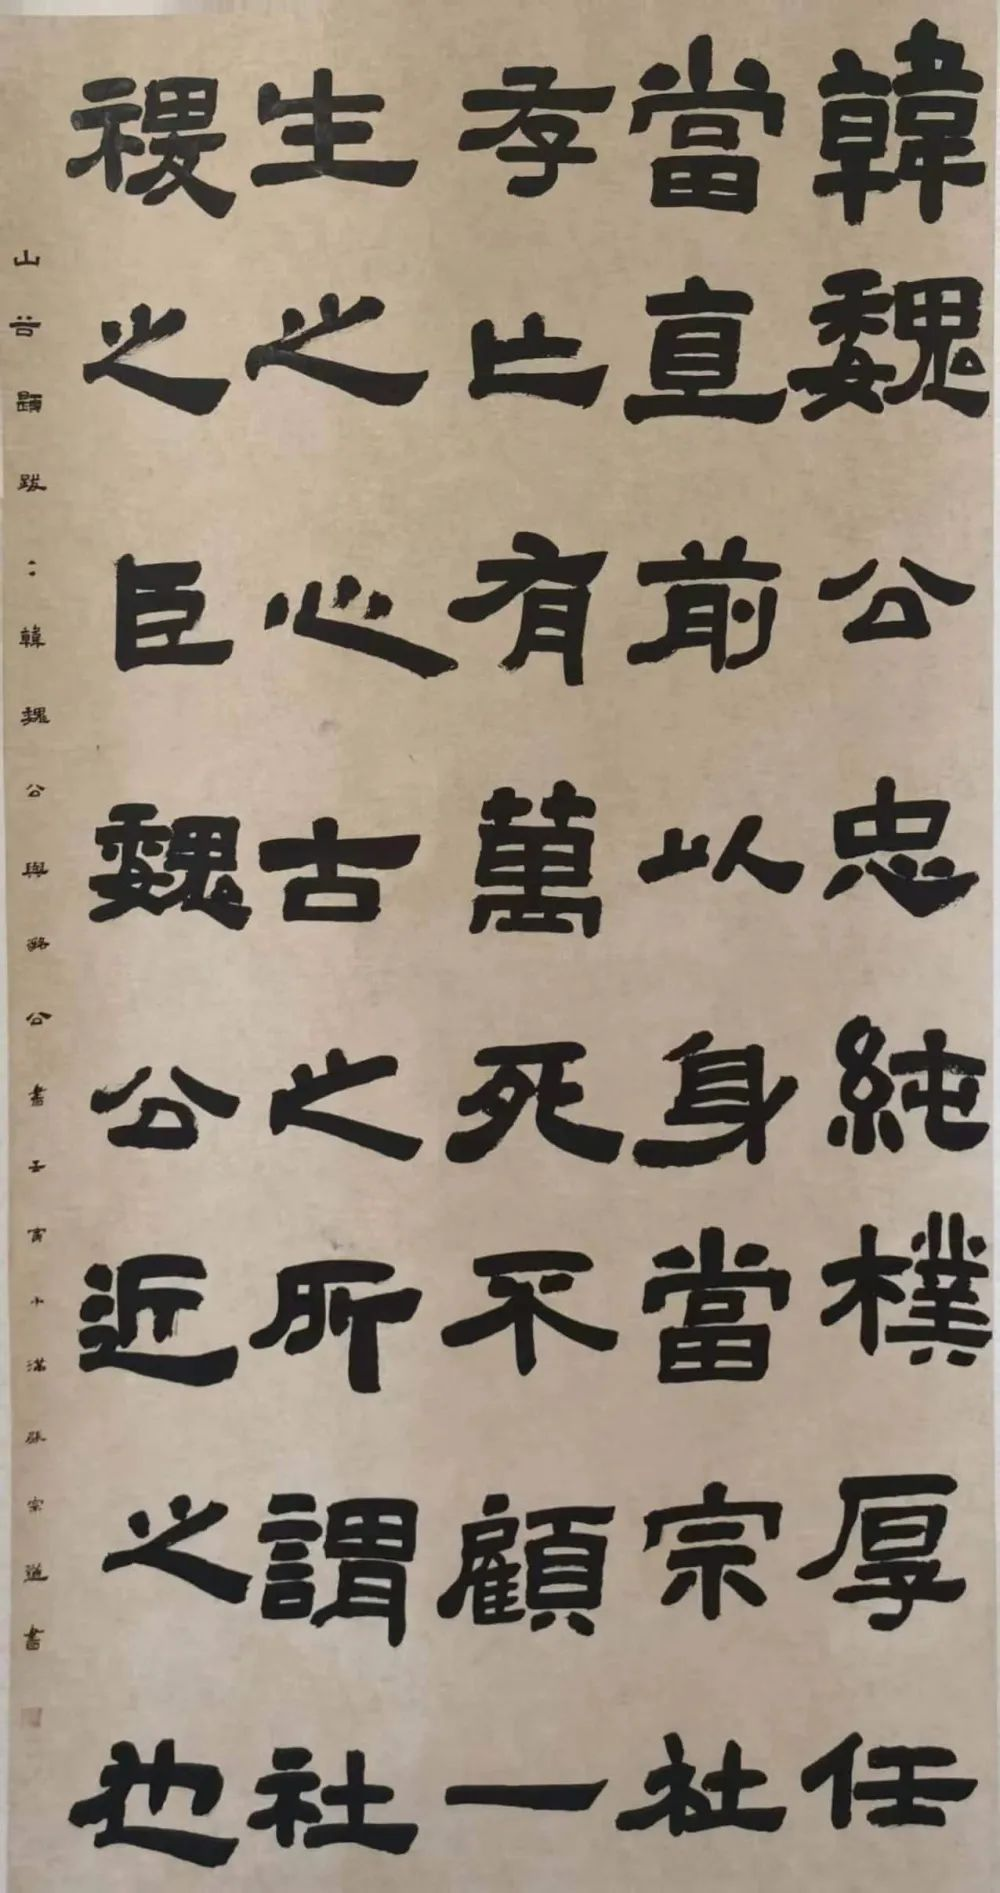 韓魏公忠純樸厚任
當直前以身當宗社
存亡有萬死不顧一
生之心古之所謂社
禝之臣魏公近之也
山谷題跋：韓魏公與潞公書壬寅小滿張宗道書